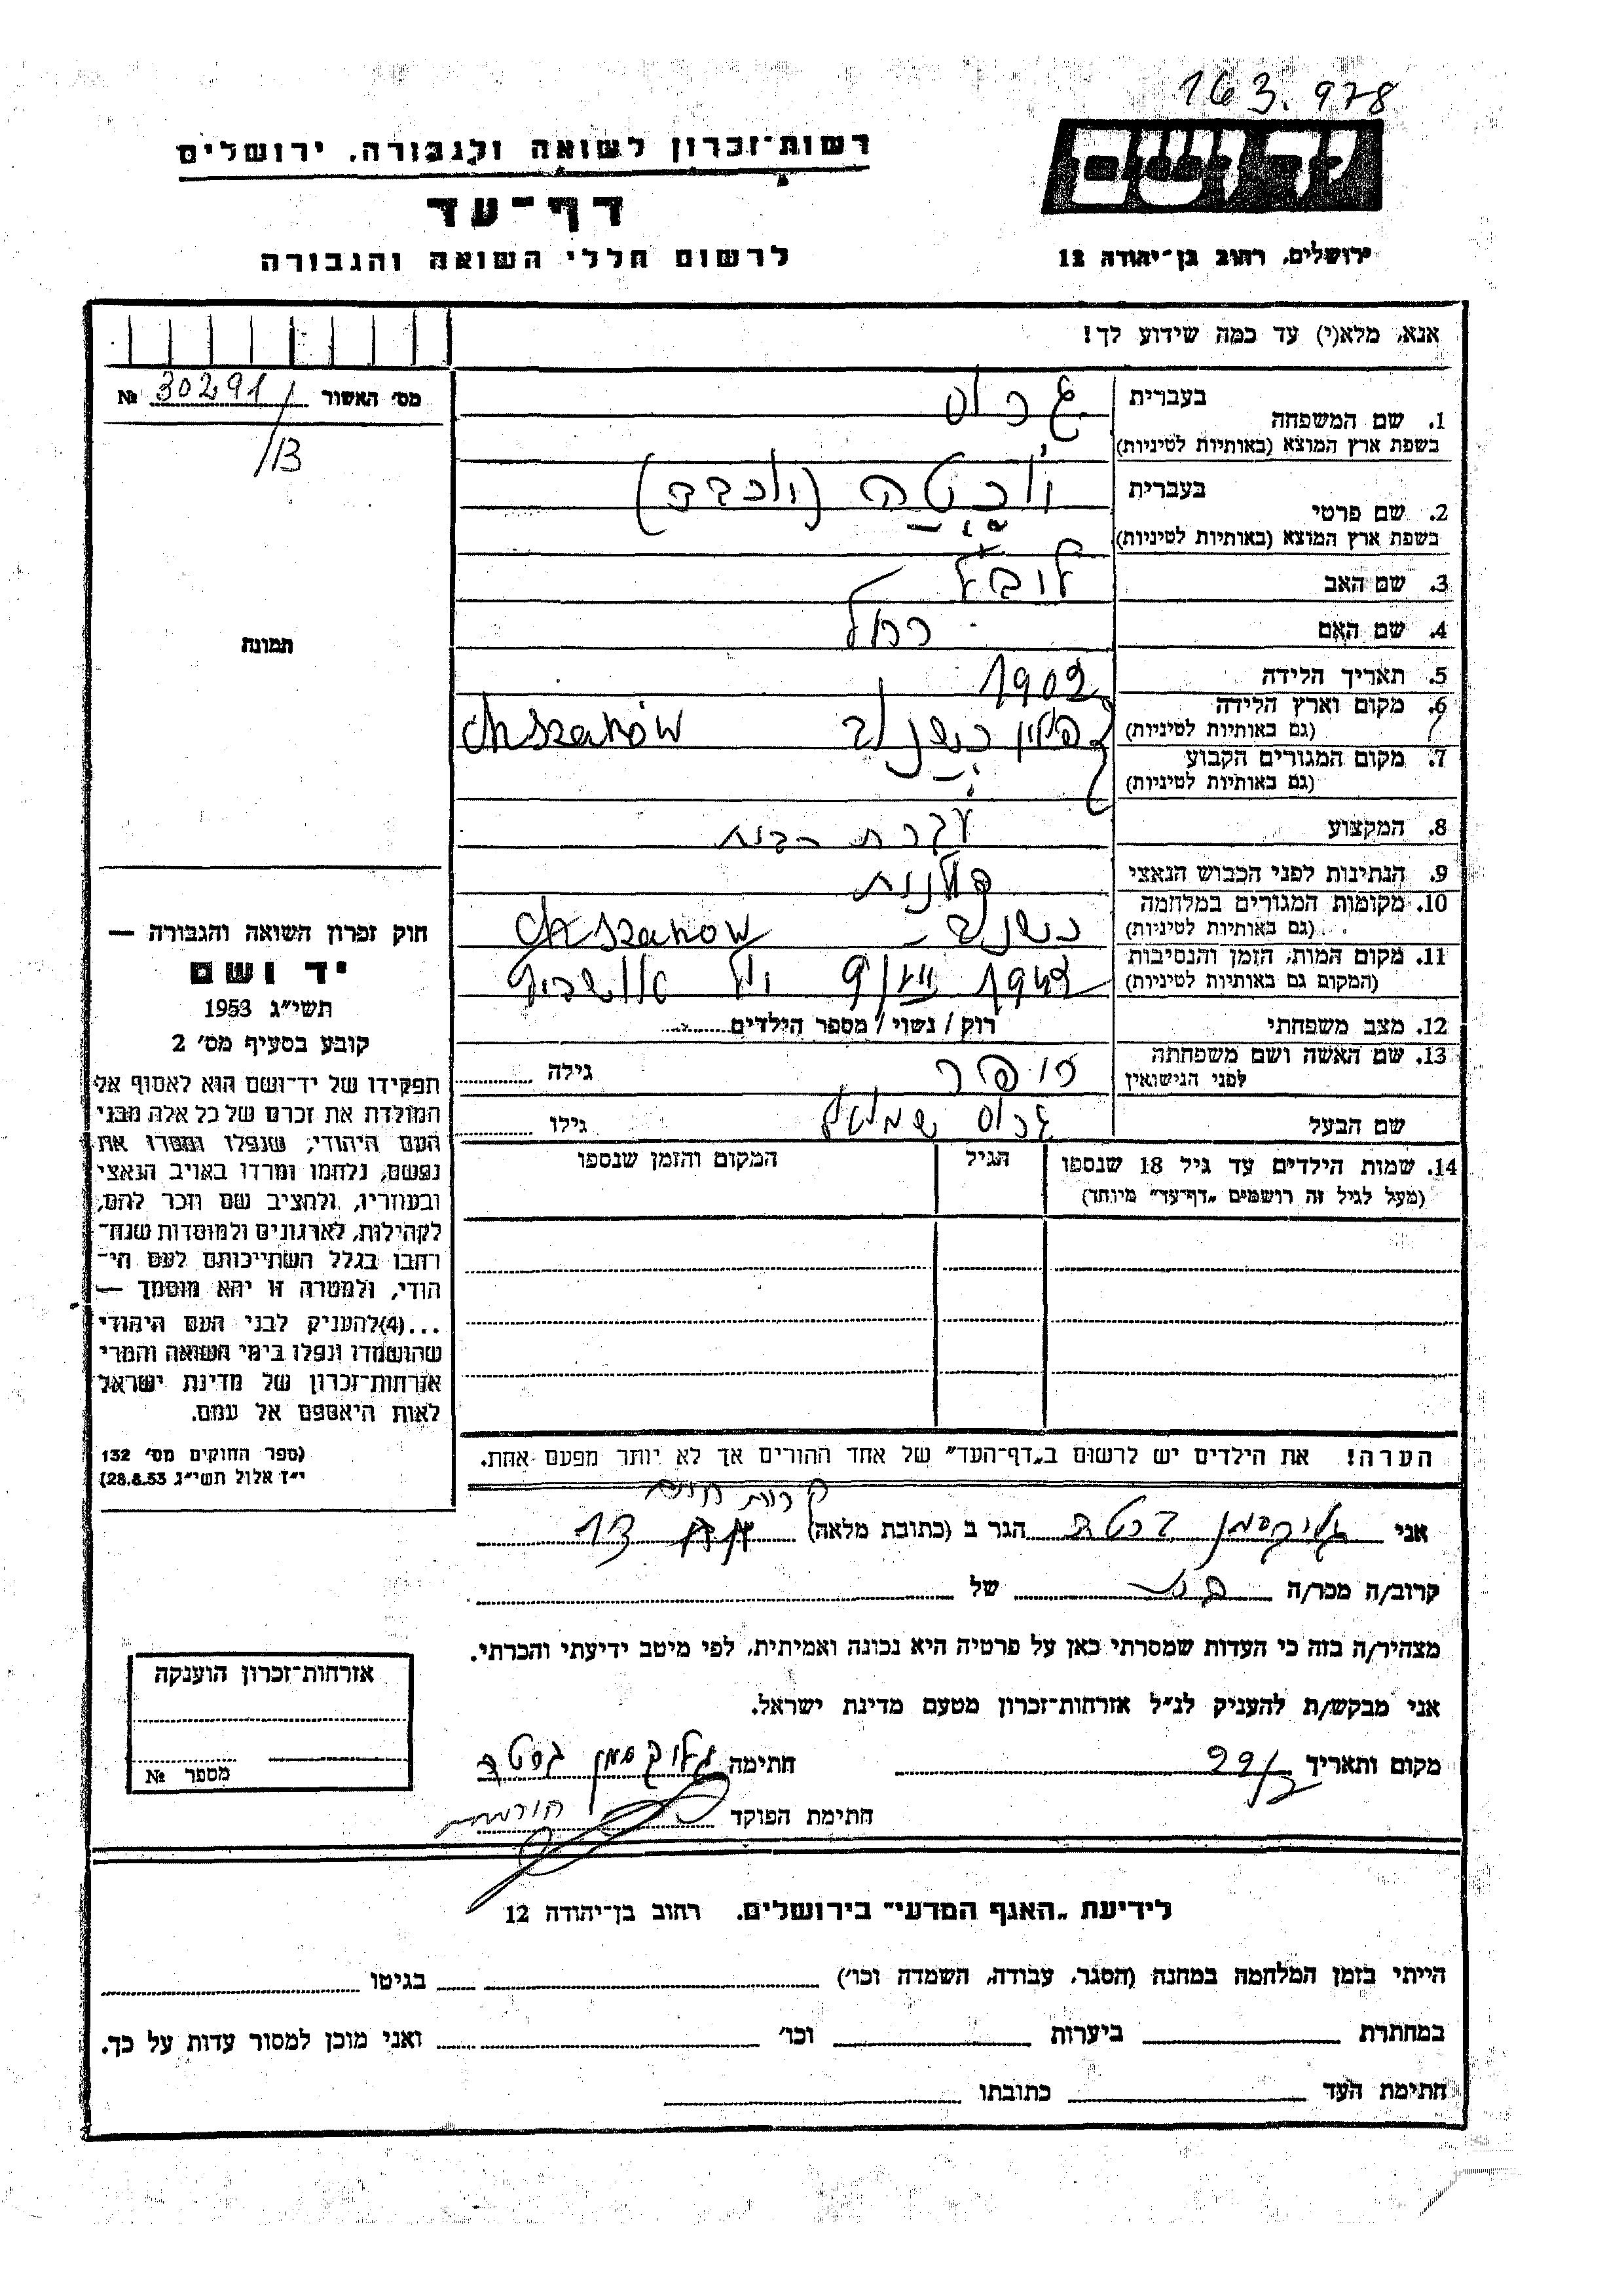 163.978
רשות־זכרון לשואה ולגבורה, ירושלים
יד ושם
דף־עד
לרשום חללי השואה והגבורה
ירושלים, רחוב בן־יהודה 12
אנא, מלא(י) עד כמה שידוע לך!
מס׳ האשור 30291 №
/13
תמונה
1. שם המשפחה
בעברית
בשפת ארץ המוצא (באותיות לטיניות)
2. שם פרטי
בעברית
בשפת ארץ המוצא (באותיות לטיניות)
3. שם האב
4. שם האם רחל
5. תאריך הלידה 1902
6. מקום וארץ הלידה פולין Chszanów
(גם באותיות לטיניות)
7. מקום המגורים הקבוע
(גם באותיות לטיניות)
8. המקצוע עקרת בית
9. הנתינות לפני הכבוש הנאצי פולנית
10. מקומות המגורים במלחמה Chszanow
(גם באותיות לטיניות)
11. מקום המות, הזמן והנסיבות 1942
(המקום גם באותיות לטיניות)
12. מצב משפחתי רוק / נשוי / מספר הילדים
13. שם האשה ושם משפחתה גילה
לפני הנישואין
שם הבעל גילו
14. שמות הילדים עד גיל 18 שנספו
(מעל לגיל זה רושמים „דף־עד״ מיוחד)
הגיל
המקום והזמן שנספו
חוק זכרון השואה והגבורה —
יד ושם
תשי״ג 1953
קובע בסעיף מס׳ 2
תפקידו של יד־ושם הוא לאסוף אל
המולדת את זכרם של כל אלה מבני
העם היהודי, שנפלו ומסרו את
נפשם, נלחמו ומרדו באויב הנאצי
ובעוזריו, ולהציב שם וזכר להם,
לקהילות, לארגונים ולמוסדות שנח־
רחבו בגלל השתייכותם לעם הי־
הודי, ולמטרה זו יהא מוסמך —
...(4)להעניק לבני העם היהודי
שהושמדו ונפלו בימי השואה והמרי
אזרחות־זכרון של מדינת ישראל
לאות היאספם אל עמם.
(ספר החוקים מס׳ 132
י״ז אלול תשי״ג 28.8.53)
הערה! את הילדים יש לרשום ב„דף־העד״ של אחד ההורים אך לא יותר מפעם אחת.
אני הגר ב (כתובת מלאה)
קרוב/ה מכר/ה של
מצהיר/ה בזה כי העדות שמסרתי כאן על פרטיה היא נכונה ואמיתית, לפי מיטב ידיעתי והכרתי.
אני מבקש/ת להעניק לנ״ל אזרחות־זכרון מטעם מדינת ישראל.
מקום ותאריך חתימה
חתימת הפוקד
אזרחות־זכרון הוענקה
מספר №
לידיעת „האגף המדעי״ בירושלים. רחוב בן־יהודה 12
הייתי בזמן המלחמה במחנה (הסגר, עבודה, השמדה וכו׳) בגיטו
במחתרת ביערות וכו׳ ואני מוכן למסור עדות על כך.
חתימת העד כתובתו